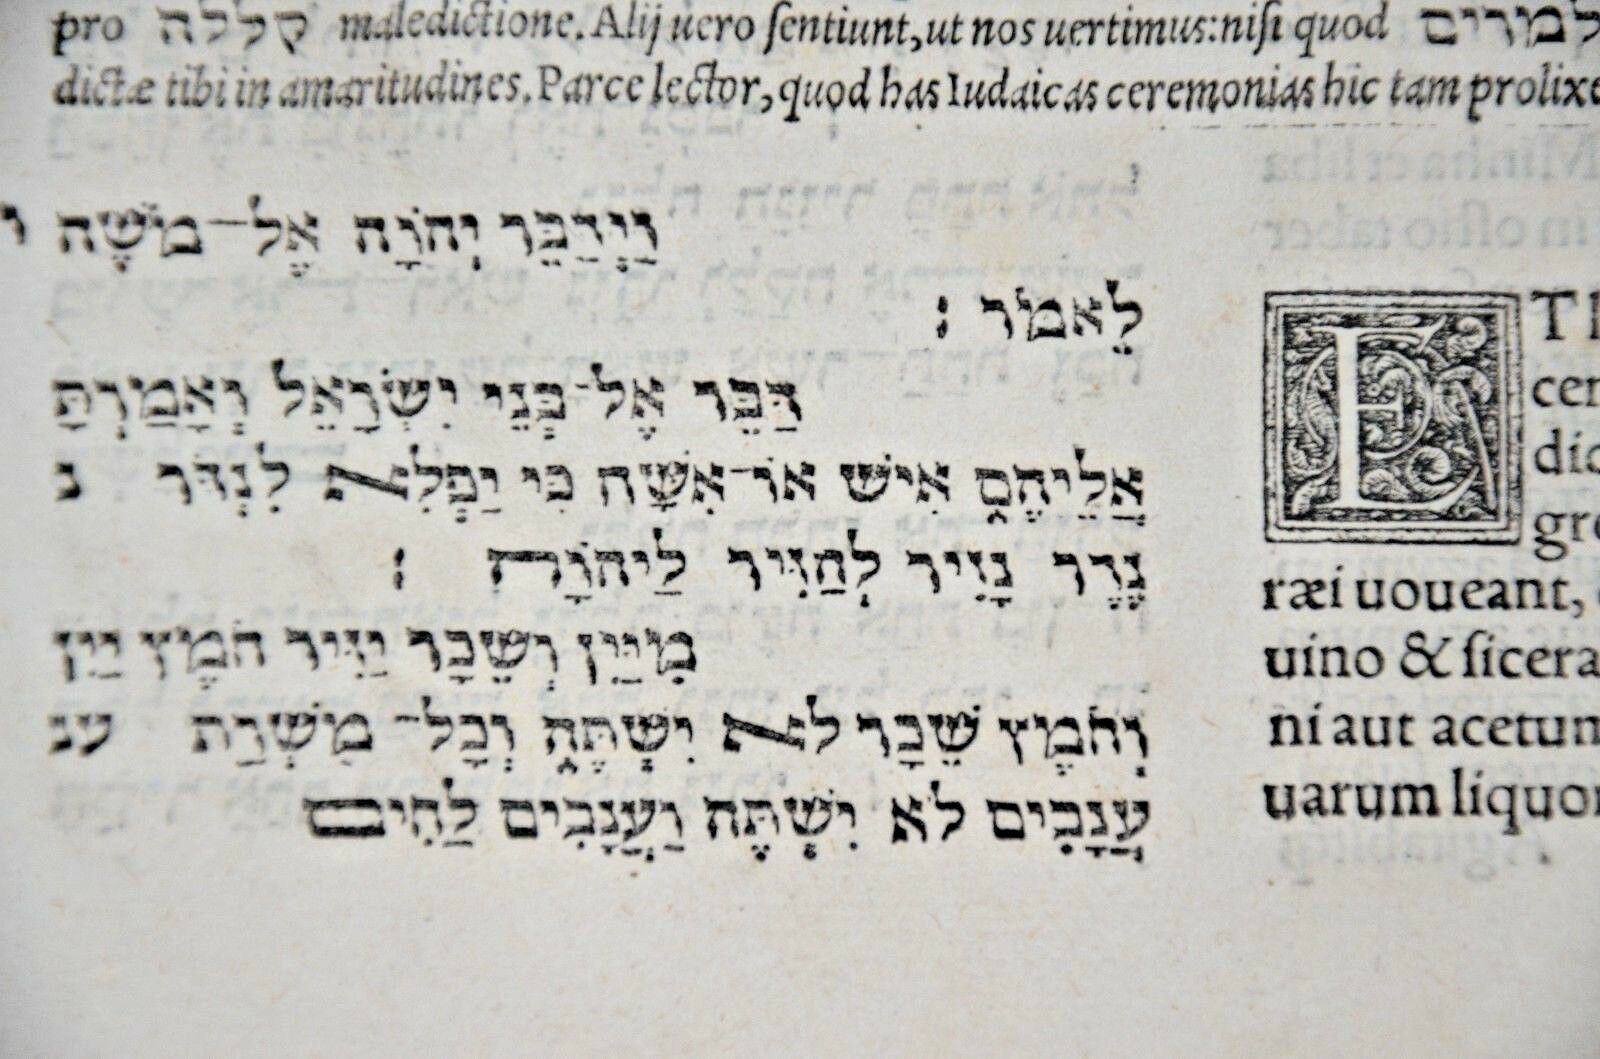 pro קללה maledictione. Alij uero ſentiunt, ut nos uertimus: niſi quod למרים
dictæ tibi in amaritudines. Parce lector, quod has Iudaicas ceremonias hic tam prolixe
וַיְדַבֵּר יְהוָֹה אֶל־מֹשֶׁה ו
לֵאמֹר :
דַּבֵּר אֶל־בְּנֵי יִשְׂרָאֵל וְאָמַרְתָּ
אֲלֵיהֶם אִישׁ אוֹ־אִשָּׁה כִּי יַפְלִא לִנְדֹּר נ
נֶדֶר נָזִיר לְהַזִּיר לַיהוָֹה :
מִיַּיִן וְשֵׁכָר יַזִּיר חֹמֶץ יַיִן
וְחֹמֶץ שֵׁכָר לֹא יִשְׁתֶּה וְכָל־ מִשְׁרַת ענ
עֲנָבִים לֹא יִשְׁתֶּה וַעֲנָבִים לַחִים
E
cer
dic
gre
ræi uoueant,
uino & ſicera
ni aut acetum
uarum liquor